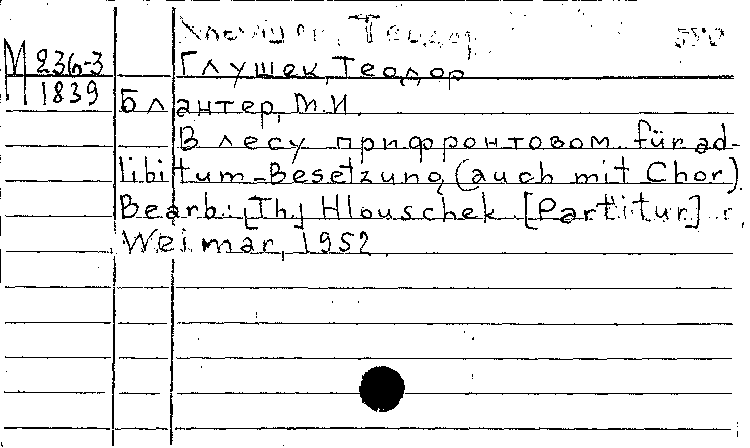 Теодор
М 236-3 Глушек, Теодор
М 1839 Блантер, М.И.
В лесу прифронтовом. für ad-
libitum-Besetzung (auch mit Chor)
Bearb.: [Th] Hlouschek [Partitur]
Weimar, 1952.